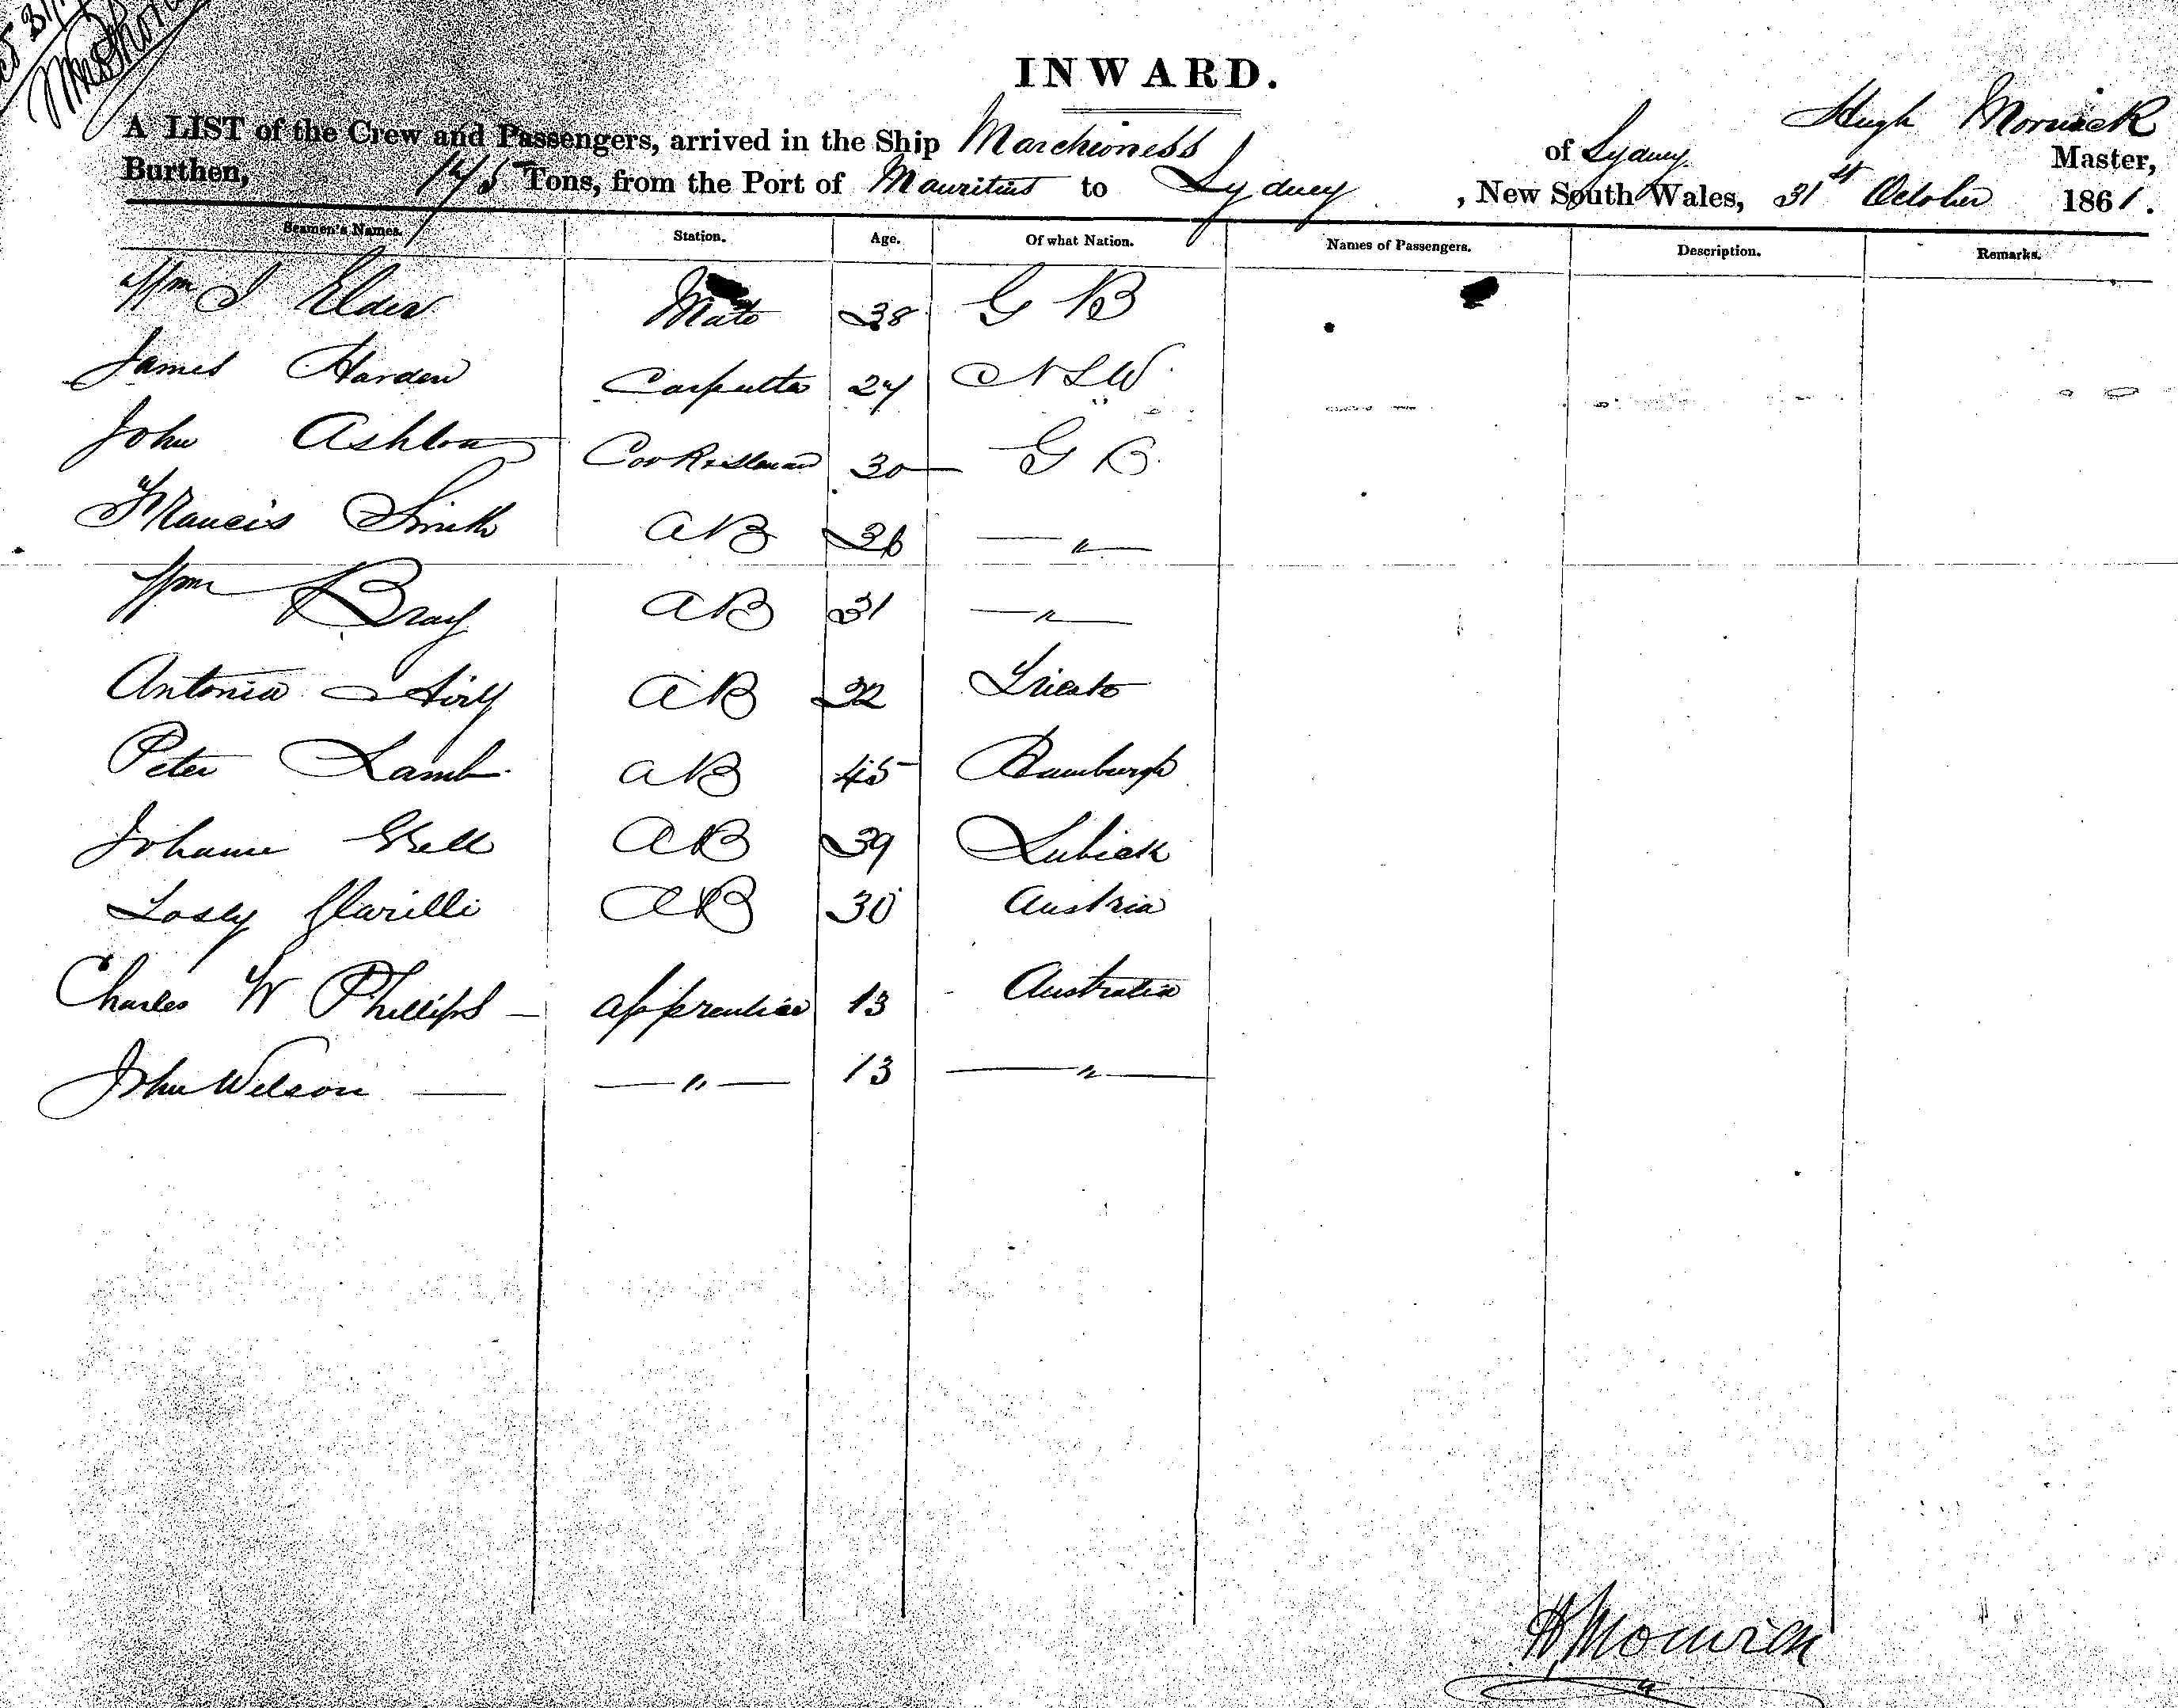 INWARD.
A LIST of the Crew and Passengers, arrived in the Ship Marchioness of Sydney Hugh Master,
Burthen, Tons, from the Port of Mauritius to Sydney, New South Wales, 31st October 1861.
Seamen's Names. Station. Age. Of what Nation. Names of Passengers. Description. Remarks.
Wm J Elder Mate 38 G B
James Harden Carpenter 24 NSW
John Ashton Cook & Steward 30 G B
Francis Smith AB 36 — " —
Wm Bray AB 31 — " —
Antonia AB 32 Trieste
Peter Lamb AB 45
AB 39 Lubick
AB 30 Austria
Charles W Phillips — apprentice 13 Australia
John Wilson — — " — 13 — " —